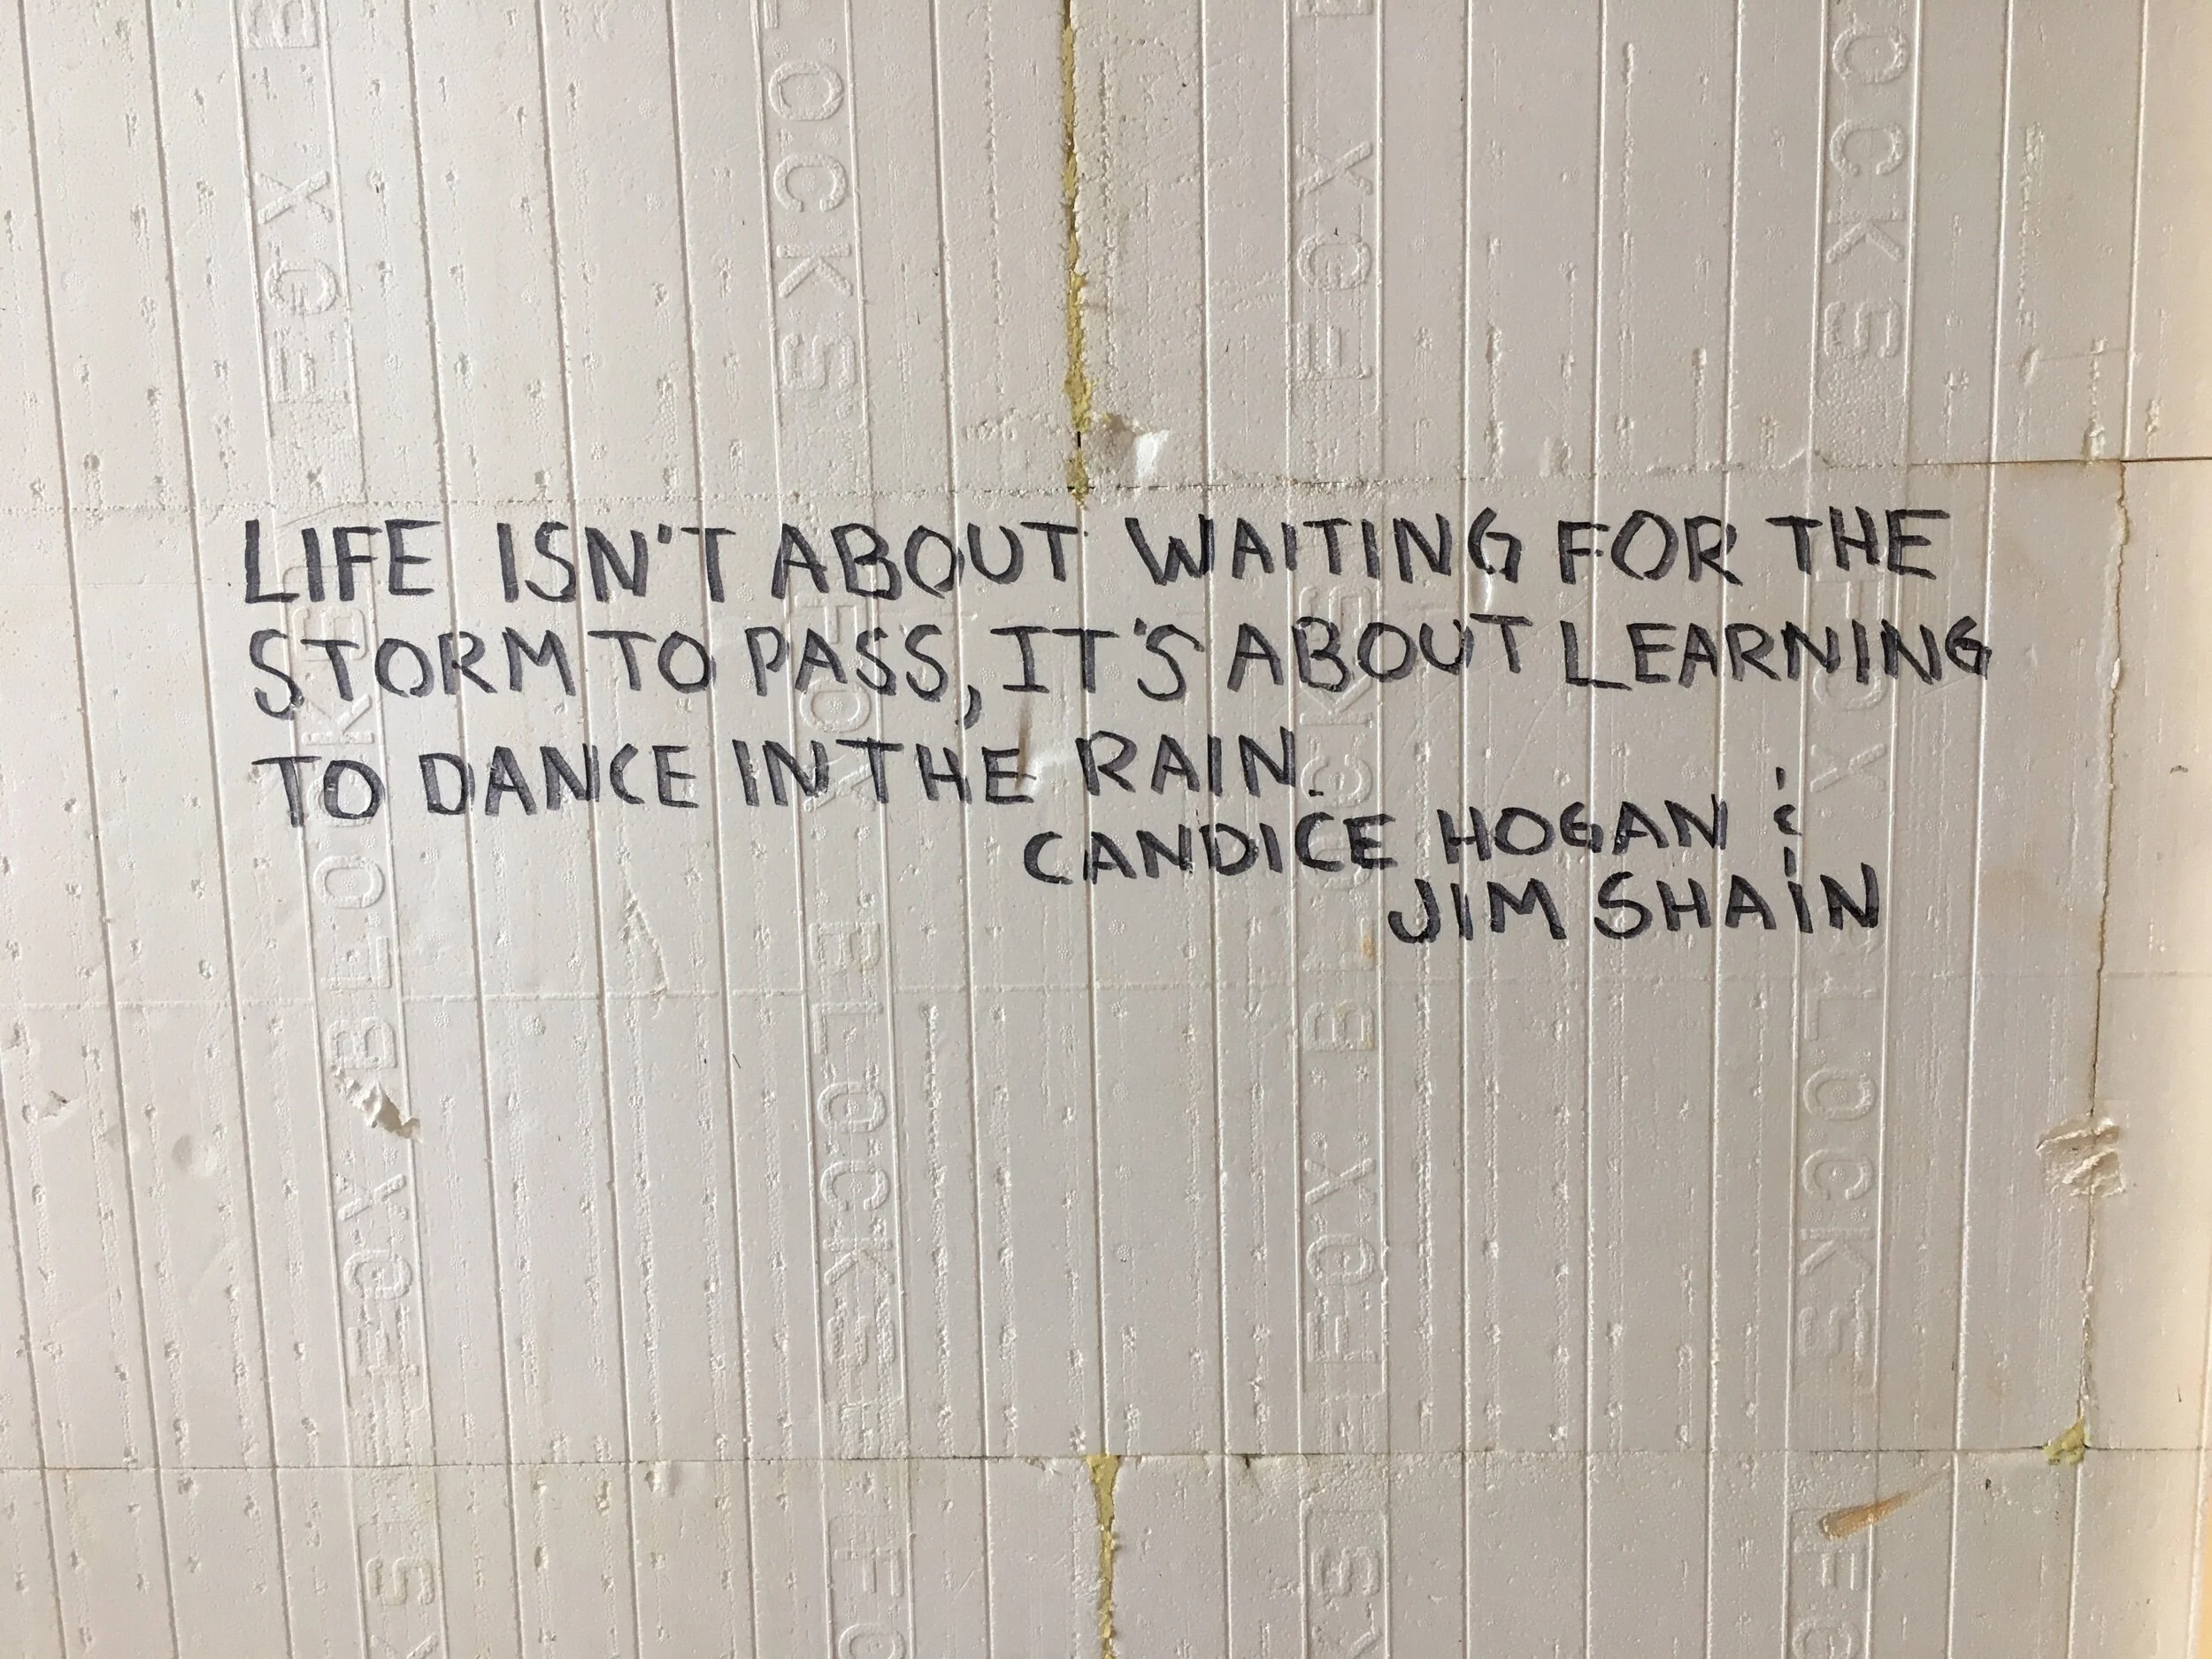 LIFE ISN'T ABOUT WAITING FOR THE
STORM TO PASS, IT'S ABOUT LEARNING
TO DANCE IN THE RAIN.
CANDICE HOGAN &
JIM SHAIN
FOX B
LOCKS
FOX
OCKS
FOX BLOCKS
FOX
FOX BLOCKS
FOX BLOCKS
FOX BLOCKS
KS
FO
KS
FO